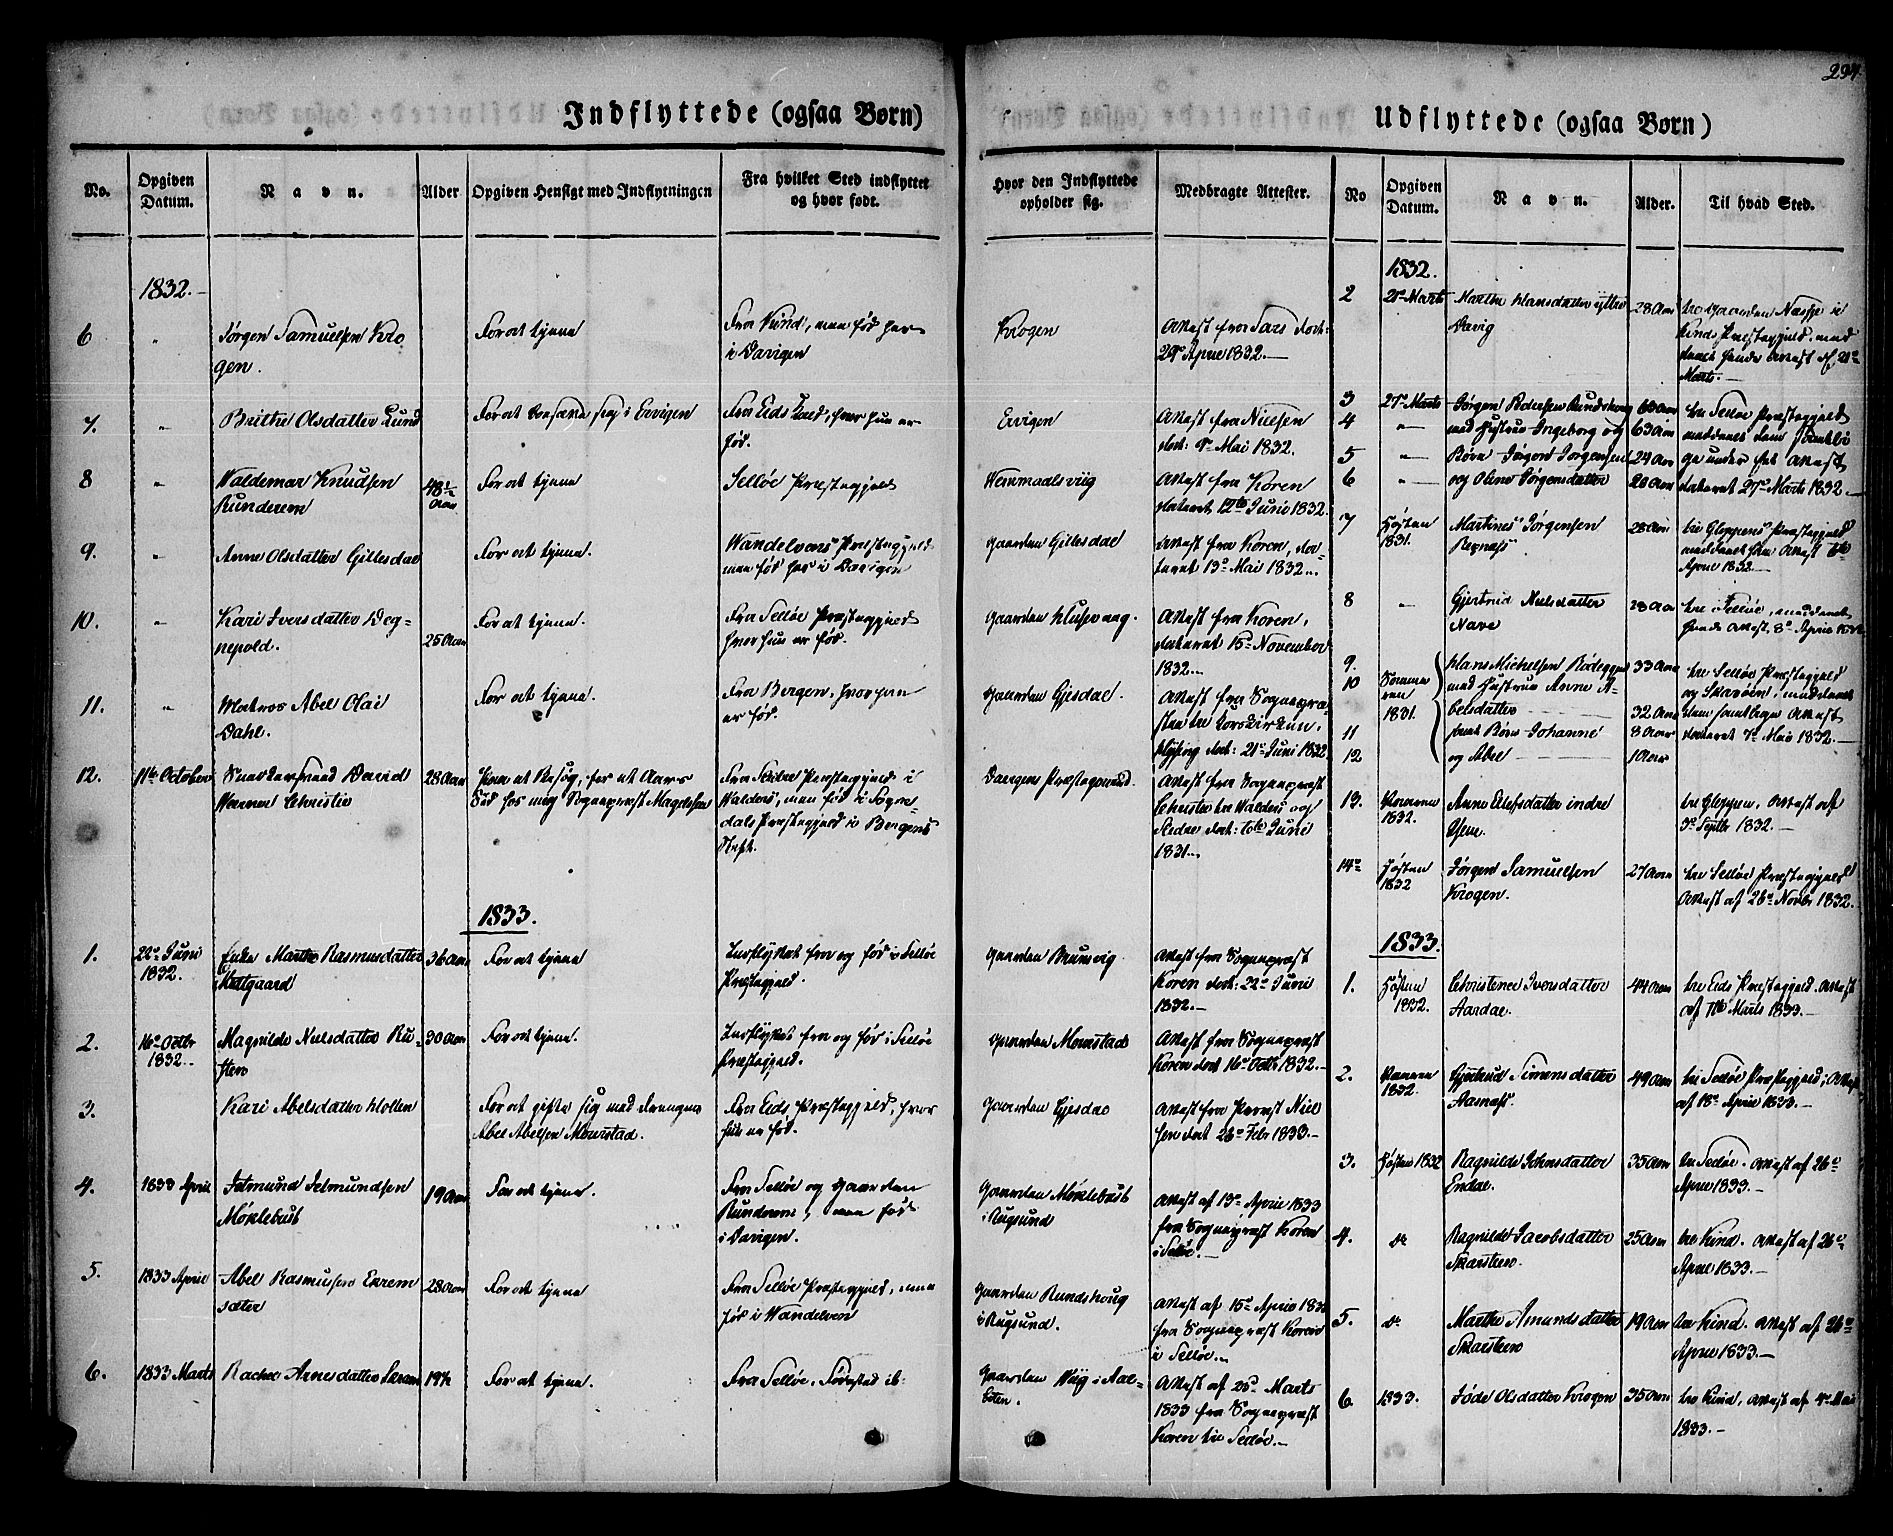 294
Indflyttede (ogsaa Børn)
No.
Opgiven
Datum.
Navn.
Alder
Opgiven Hensigt med Indflytningen
Fra hvilket Sted indflyttet
og hvor født.
Hvor den Indflyttede
opholder sig.
Medbragte Attester.
1832.
6
Jørgen Samuelsen Kro
gen.
For at tjene
Fra Kind, men fød her
i Davigen
Krogen
Attest fra
29de April 1832.
7.
Brithe Olsdatter Lund
For at bosætte sig i Ervigen
Fra Eids Præld, hvor hun er
fød.
Ervigen
Attest fra Nielsen
dat: 9de Mai 1832.
8
Waldemar Knudsen
Runderem
48½
Aar
For at tjene
Selløe Præstegjeld
Wemmaelsviig
Attest fra Koren
dateret 12te Juni 1832.
9.
Anne Olsdatter Gillesdal
For at tjene.
Wandelvens Præstegjeld
men fød her i Davigen
Gaarden Gillesdal
Attest fra Koren, da-
teret 13de Mai 1832.
10.
Kari Iversdatter Deg-
nepold.
25 Aar
For at tjene.
Fra Selløe Præstegjeld
hvor hun er fød.
Gaarden Husevaag.
Attest fra Koren,
dateret 15de November
1832.
11.
Matros Abel Olai
Dahl.
For at tjene.
Fra Bergen, hvor han
er fød.
Gaarden Gjesdal.
Attest fra Sognepræ-
sten til Korskirken,
dat: 21de Juni 1832
12.
11te October
David
Werner Christie
28 Aar
Paa et Besøg, for et Aars
Tid hos mig Sognepræst Magelssen
Fra Præstegjeld i
Walders, men fød i Sogn-
dals Præstegjeld i Bergens
Stift.
Davigens Præstegaard
Attest fra Sognepræst
Christie til Walders og
dat: 6te Juni
1831.
1833.
1.
22de Juni
1832.
Enke Marthe Rasmusdatter
Mettgaard
36 Aar
For at tjene
Indflyttet fra og fød i Selløe
Præstegjeld.
Gaarden Brunsvig
Attest fra Sognepræst
Koren dat: 22de Juni
1832.
2.
16de Octbr
1832.
Magnilde Nielsdatter Ru-
sten
30 Aar
For at tjene.
Indflyttet fra og fød i Selløe
Præstegjeld.
Gaarden Monstad
Attest fra Sognepræst
Koren dat 16de Octbr 1832.
3.
Kari Abelsdatter Hollen
For at gifte sig med Drengen
Abel Abelsen Monstad.
Fra Eids Præstegjeld, hvor
hun er fød.
Gaarden Gjesdal
Attest fra Provst Niel
sen dat 28de Febr 1833.
4.
1833 April
Jetmund Jetmundsen
Moklebust
19 Aar
For at tjene.
Fra Selløe og Gaarden
Runderem, men fød
i Davigen.
Gaarden Moklebust
i Rugsund
Attest af 13de April 1833
fra Sognepræst Koren
i Selløe.
5.
1833 April
Abel Rasmussen Ervem
sæter
28 Aar
For at tjene
Fra Selløe Præstegjeld, men
fød i Wandelven
Gaarden Rundehoug
i Rugsund.
Attest af 15de April 1833
fra Sognepræst Koren
i Selløe.
6.
1833 Marts
Rachel Arnesdatter
19½
For at tjene.
Fra Selløe. Fødested ib.
Gaarden Wiig i Aal-
foten.
Attest af 25de Marts
1833 fra Sognepræst
Koren til Selløe.
Udflyttede (ogsaa Børn)
No
Opgiven
Datum.
Navn.
Alder.
Til hvad Sted.
1832.
2
21de Marts
Marthe Hansdatter ytter
Davig
28 Aar
til Gaarden i
Kinds Præstegjeld, med
deelt hende Attest af 21de
Marts.
3
27de Marts
Jørgen Pedersen Rundehoug
60 Aar
til Selløe Præstegjeld
4
med Hustrue Ingeborg og
63 Aar
meddeelt dem samtli
5
Børn Jørgen Jørgensen
24 Aar
ge under fæl. Attest
6
og Oline Jørgensdatter
20 Aar
dateret 27de Marts 1832.
7
Høsten
1831.
Martines Jørgensen
28 Aar
til Gloppens Præstegjeld
meddeelt ham Attest 6te
April 1832.
8
Gjertrud Nielsdatter
Nave
28 Aar
til Selløe, meddeelt
hende Attest, 8de April 1832
9.
Hans Michelsen
33 Aar
til Selløe Præstegjeld
10
Somme
ren
1831.
med Hustrue Anne A-
belsdatter
32 Aar
og Skaröen, meddeelt
dem samtlige Attest
11
samt Børn Johanne
8 Aar
dateret 7de Mai 1832.
12
og Abel
1 Aar
13.
Vaaren
1832.
Anne Elefsdatter indre
Oyen.
til Gloppen, Attest af
3de Septbr 1832.
14
Høsten
1832
Jørgen Samuelsen
Krogen.
27 Aar
til Selløe Præstegjeld
Attest af 26de Novbr 1832.
1833.
1.
Høsten
1832.
Christence Iversdatter
Aardal
44 Aar
til Eids Præstegjeld. Attest
af 11te Marts 1833.
2.
Vaaren
1832.
Gjertrud Simensdatter
Aarnes.
49 Aar
til Selløe Præstegjeld, Attest
af 18de April 1833.
3.
Høsten 1832
Ragnilde Johnsdatter
Endal.
35 Aar
til Selløe. Attest af 26de
April 1833.
4.
do
Ragnilde Jacobsdatter
Skarsteen.
25 Aar
til Kind. Attest af 26de
April 1833.
5.
do
Marthe Amundsdatter
Skarsteen
19 Aar
til Kind. Attest af 26de
April 1833.
6
1833.
Jøde Olsdatter Krogen
35 Aar
til Kind, Attest af 4de Mai
1833.